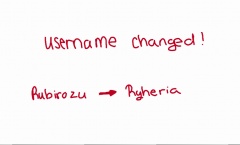 username changed!
Rubirozu → Ryheria